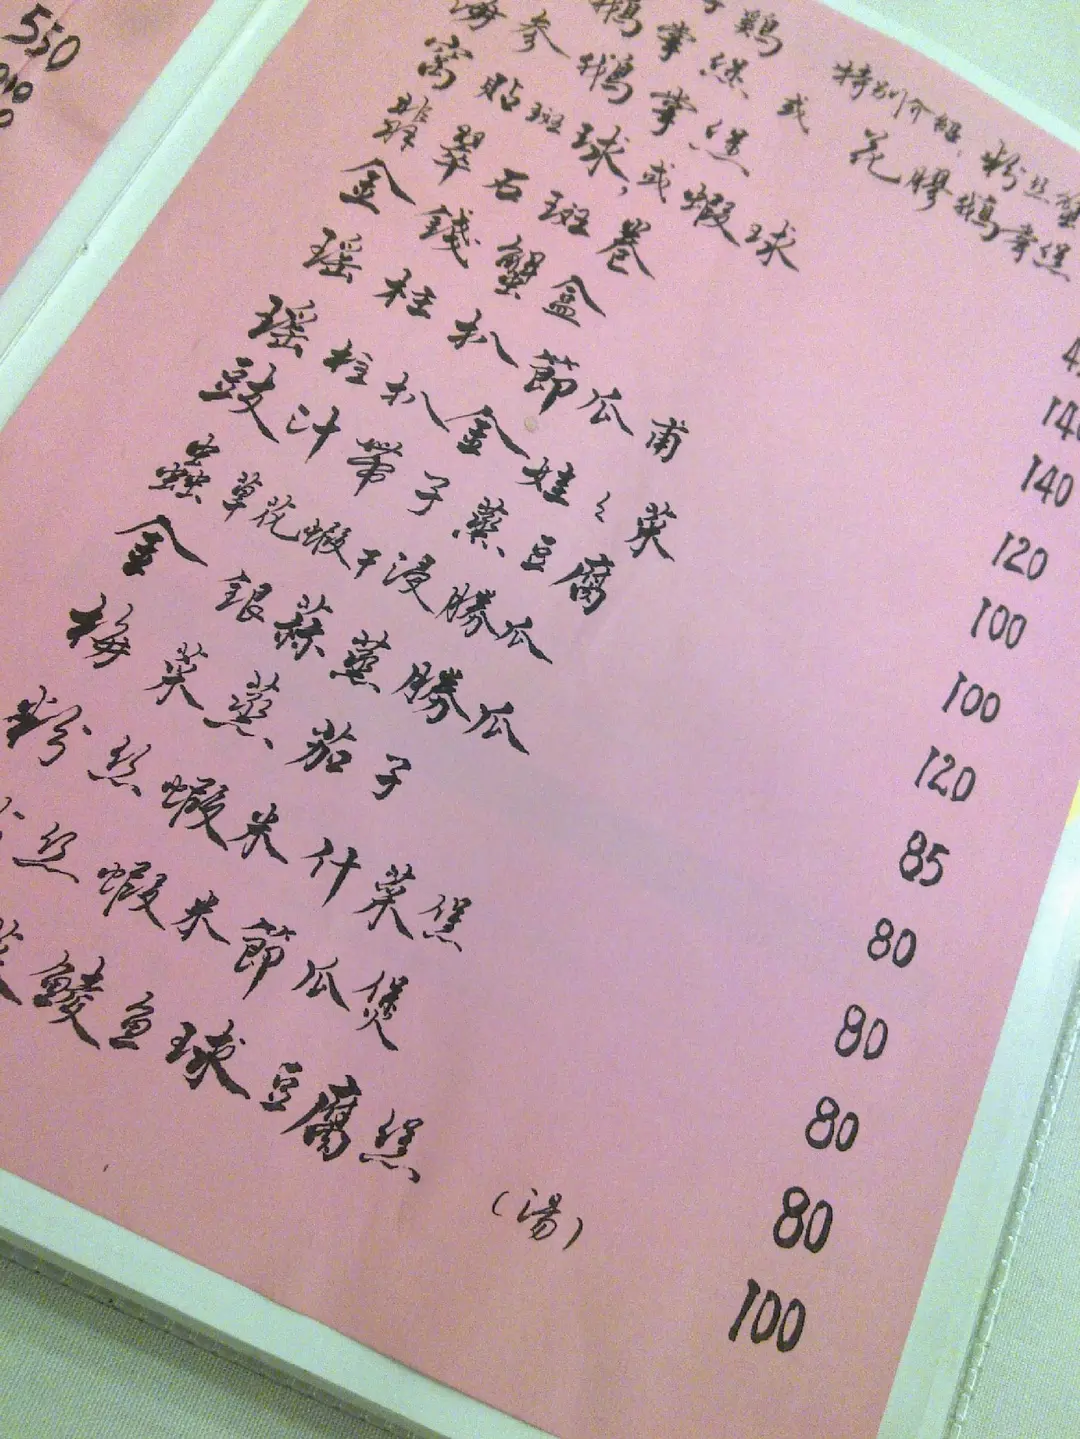 550
鷄
特別介紹:粉丝蟹
鵝掌煲 或 花膠鵝掌煲
海参鵝掌煲
窩貼斑球,或蝦球
翡翠石斑卷
金錢蟹盒
瑶柱扒節瓜甫 140
瑶柱扒金娃々菜 120
豉汁带子蒸豆腐 100
蟲草花蝦干浸勝瓜 100
金銀蒜蒸勝瓜 120
梅菜蒸茄子 85
粉丝蝦米什菜煲 80
丝蝦米節瓜煲 80
菜鯪魚球豆腐煲 80
(湯) 80
100